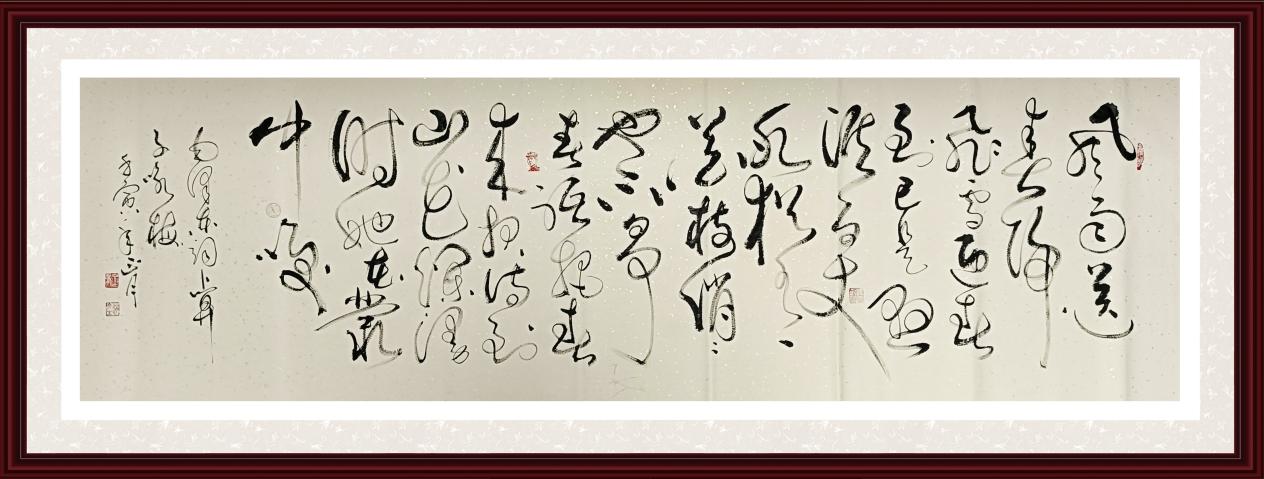 风雨送
春归
飞雪迎春
到已是悬
崖百丈
冰犹有
花枝俏〻
也不争
春只把春
来报待到
山花烂漫
时她在叢
中笑
毛泽东词卜算
子咏梅
壬寅